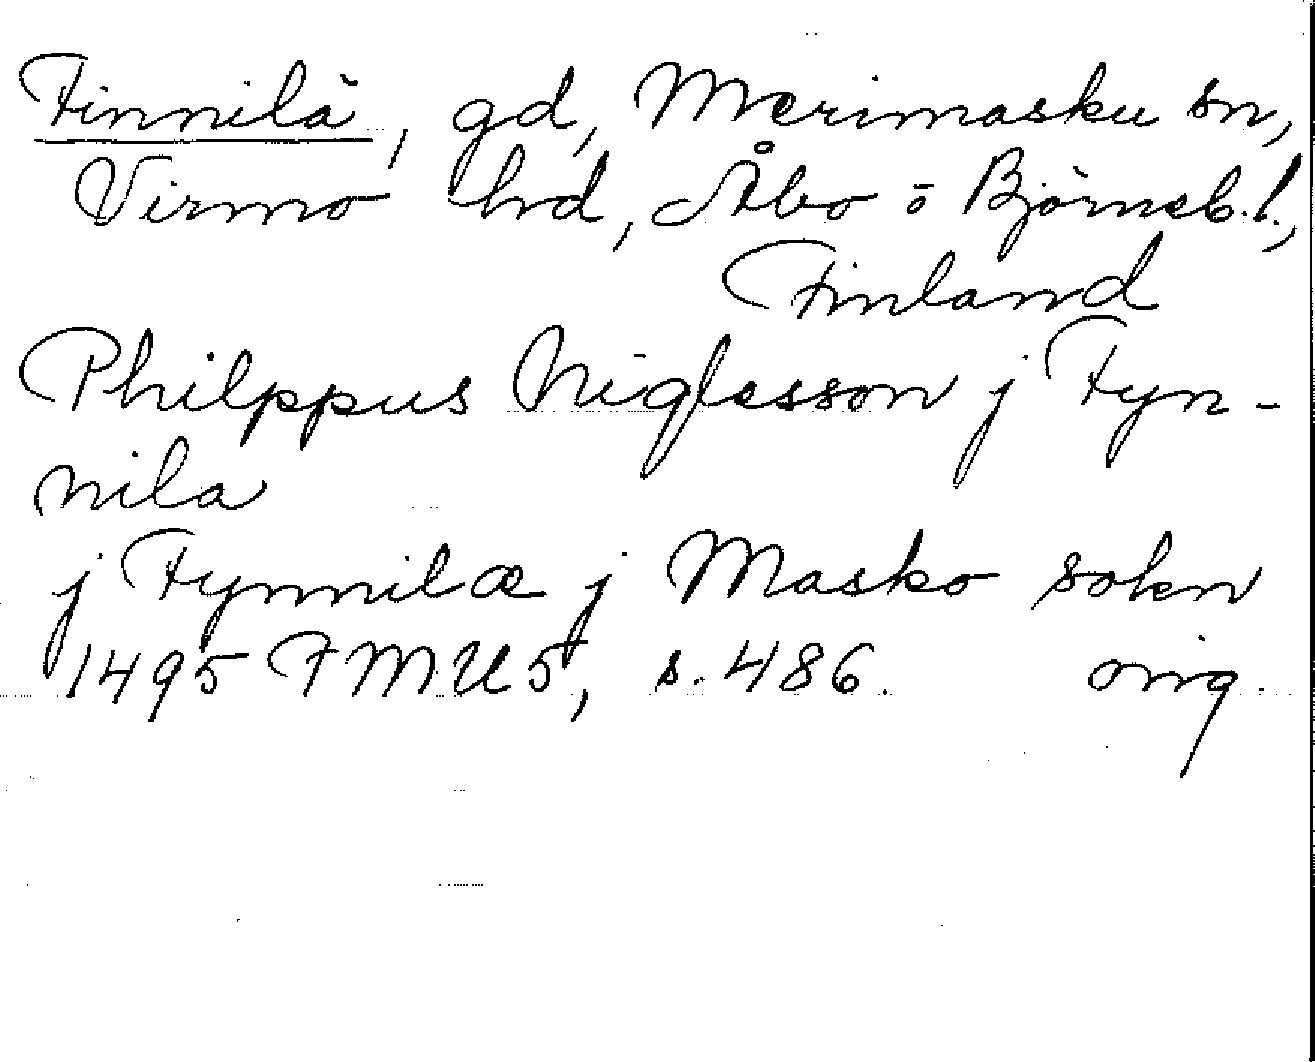 Finnilä, gd, Merimasku sn,
Virmo hd, Åbo o Björneb. l.,
Finland
Philppus Niglesson j Fyn-
nila
j Fynnilæ j Masko sokn
1495 FMU5, s. 486. orig.